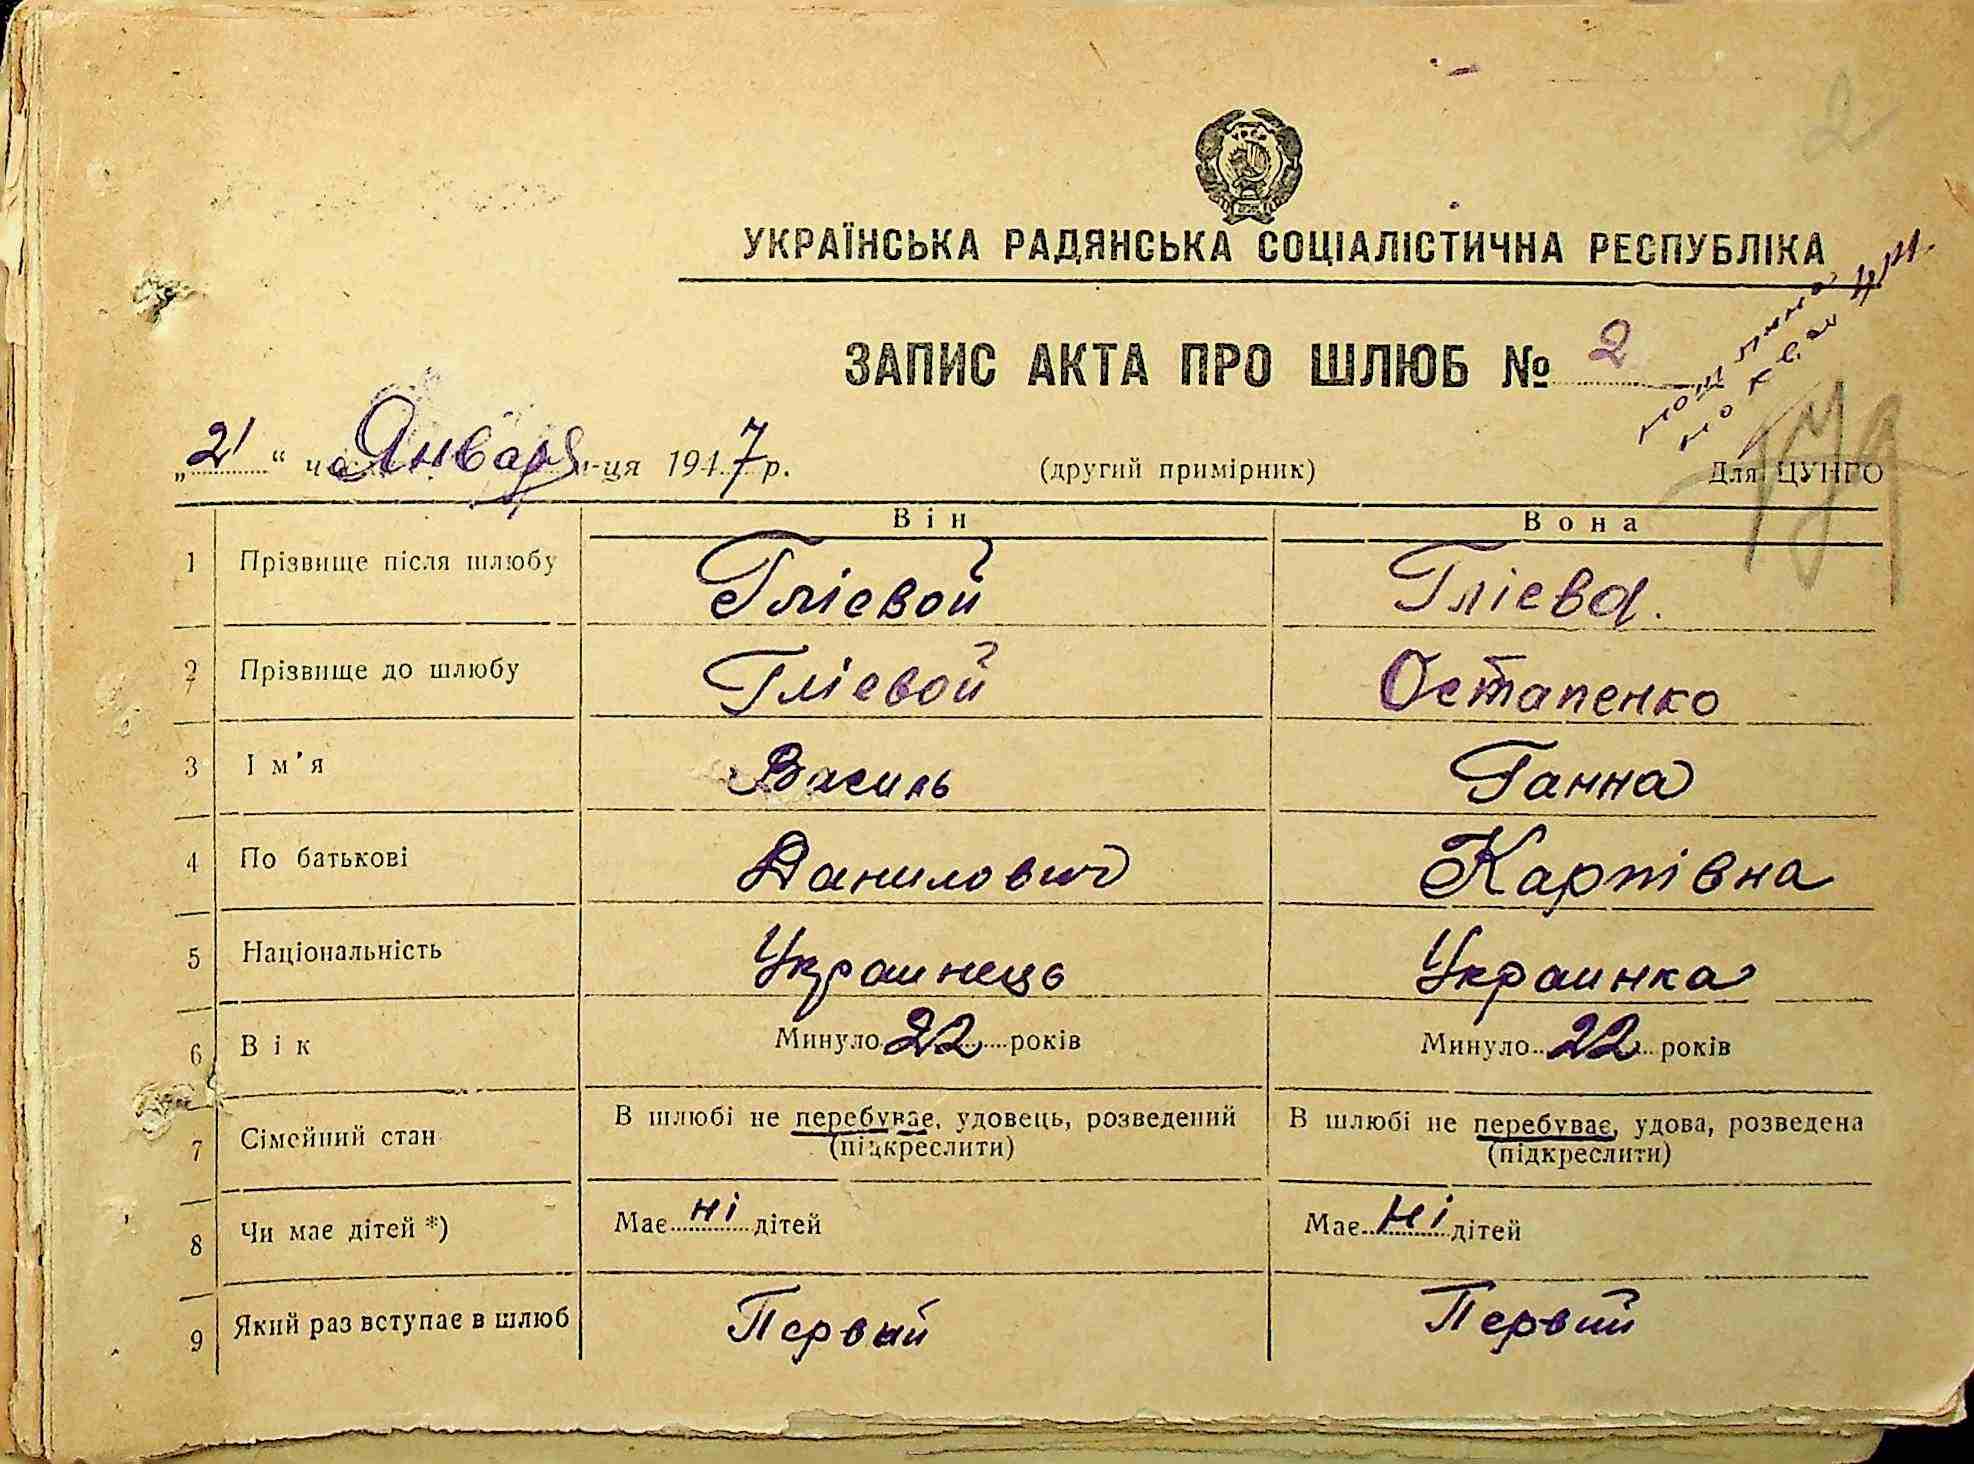 2
УКРАЇНСЬКА РАДЯНСЬКА СОЦІАЛІСТИЧНА РЕСПУБЛІКА
ЗАПИС АКТА ПРО ШЛЮБ № 2
„21“ Января м-ця 1947 р. (другий примірник) Для ЦУНГО
Він Вона
1 Прізвище після шлюбу Глієвой Глієва.
2 Прізвище до шлюбу Глієвой Остапенко
3 Ім'я Василь Ганна
4 По батькові Данилович Карпівна
5 Національність Украинець Украинка
6 Вік Минуло 22 років Минуло 22 років
7 Сімейний стан В шлюбі не перебуває, удовець, розведений В шлюбі не перебуває, удова, розведена
(підкреслити) (підкреслити)
8 Чи має дітей *) Має ні дітей Має ні дітей
9 Який раз вступає в шлюб Первый Первий